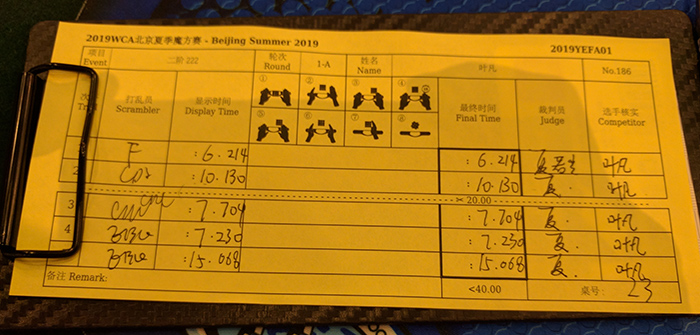 2019WCA北京夏季魔方赛 - Beijing Summer 2019 2019YEFA01
项目 Event 二阶 222 轮次 Round 1-A 姓名 Name 叶凡 No.186
打乱员 Scrambler 显示时间 Display Time ① ② ③ ④ ⑤ ⑥ ⑦ ⑧ 最终时间 Final Time 裁判员 Judge 选手核实 Competitor
F :6.214 :6.214 夏 叶凡
2 :10.130 :10.130 夏. 叶凡
× 20.00
3 :7.704 :7.704 夏. 叶凡
4 :7.230 :7.230 夏. 叶凡
:15.068 :15.068 夏. 叶凡
备注 Remark: <40.00 桌号: 23